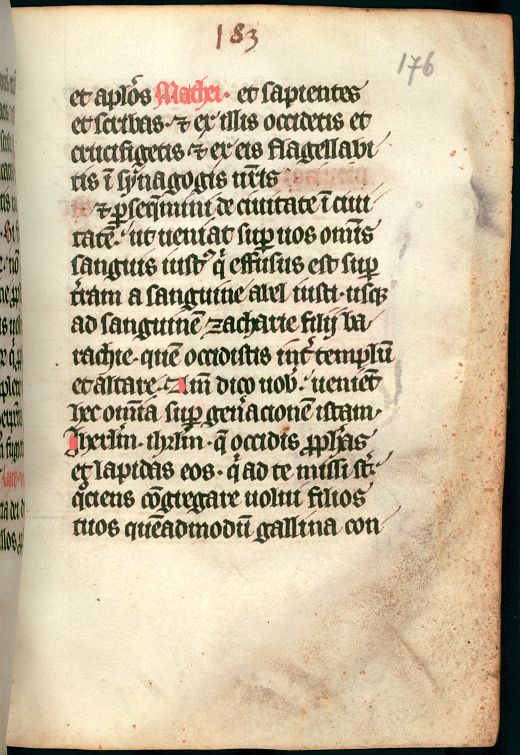 183
176
et apl̄os Mathei· et sapientes
et scribas· ⁊ ex illis occidetis et
crucifigetis ⁊ ex eis flagellabi
tis ī synagogis vr̄is
⁊ ꝑseq̄mini de ciuitate ī ciui
tatē· ut ueniat suꝑ uos om̄is
sanguis iustꝰ q̄ effusus est suꝑ
t̄ram a sanguine abel iusti· usqꝫ
ad sanguinē zacharie filij ba
rachie· quē occidistis int̄ templū
et altare· Am̄ dico uob̄· ueniēt
hec om̄ia suꝑ gen̄acionē istam·
Jherl̄m· ihrl̄m· q̄ occidis ꝓph̄as
et lapidas eos· q̄ ad te missi st̄·
q̄ciens cōgregare uolui filios
tuos quēadmodū gallina con